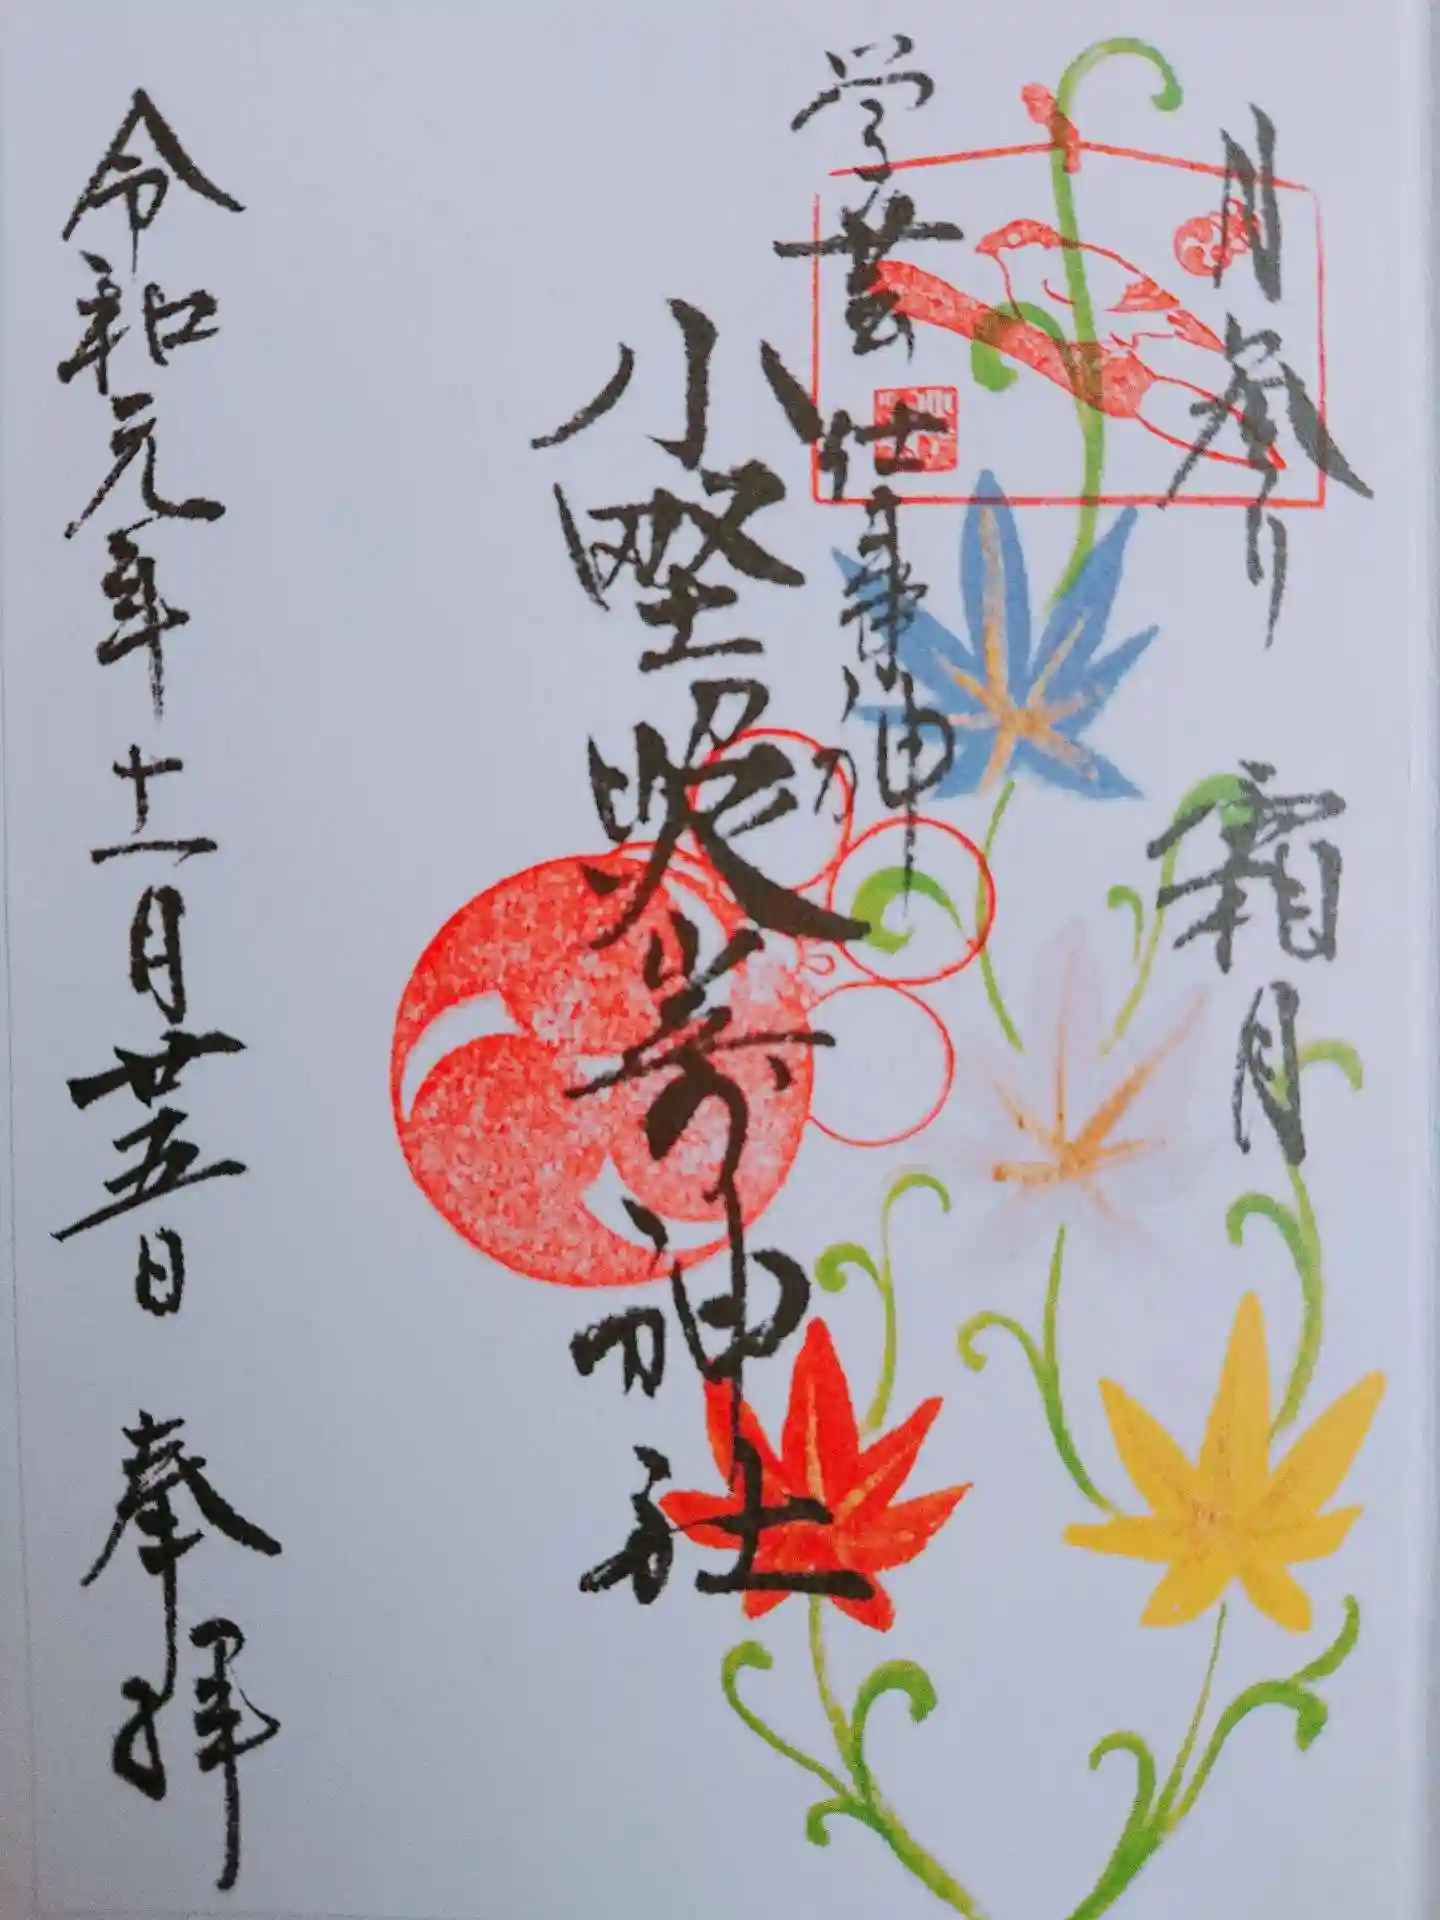 月参り 霜月
学芸 仕事乃神
小野照崎神社
令和元年十一月廿五日 奉拝